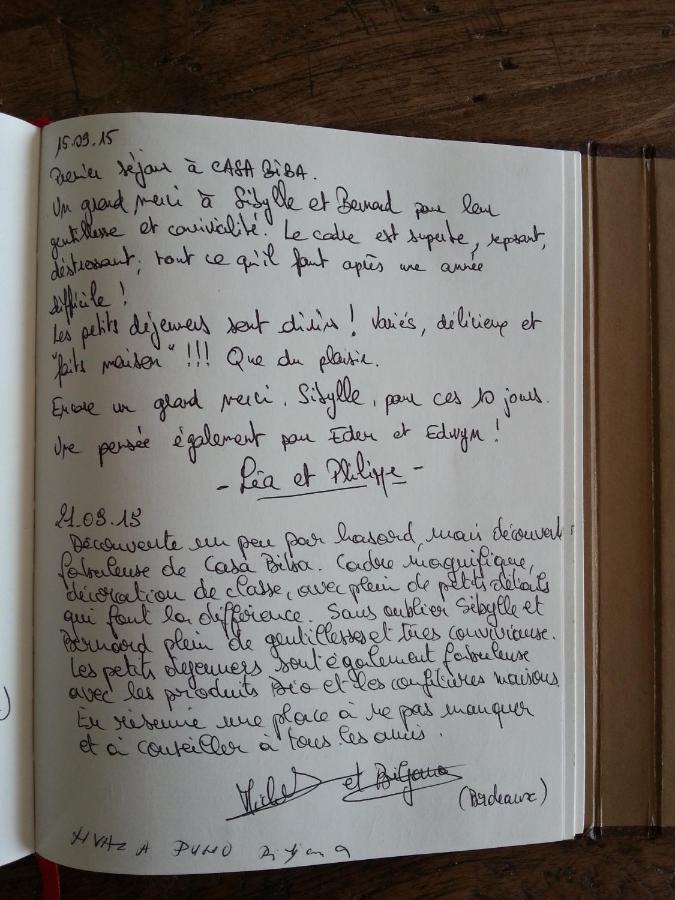 15.09.15
Premier séjour à CASA BIBA.
Un grand merci à Sibylle et Bernard pour leur
gentillesse et convivialité. Le cadre est superbe, reposant,
déstressant; tout ce qu'il faut après une année
difficile !
Les petits déjeuners sont divins ! Variés, délicieux et
"faits maison" !!! Que du plaisir.
Encore un grand merci, Sibylle, pour ces 10 jours.
Une pensée également pour Eden et Edwyn !
- Léa et Philippe -
21.09.15
Découverte un peu par hasard, mais découverte
fabuleuse de Casa Biba. Cadre magnifique,
décoration de classe, avec plein de petits détails
qui font la différence. Sans oublier Sibylle et
Bernard plein de gentillesses et très conviviause.
Les petits dejeuners sont également fabuleuse
avec les produits Bio et les confitures maisons
En résumé une place à ne pas manquer
et à conseiller à tous les amis.
et Biljana
(Bordeaux)
HVALA PUNO Biljana